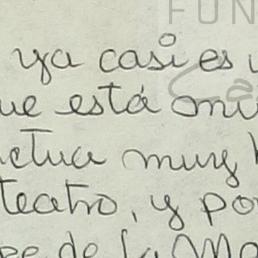 FUN
ya casi es
ue está mu
ctua muy
teatro, y po
de la Ma